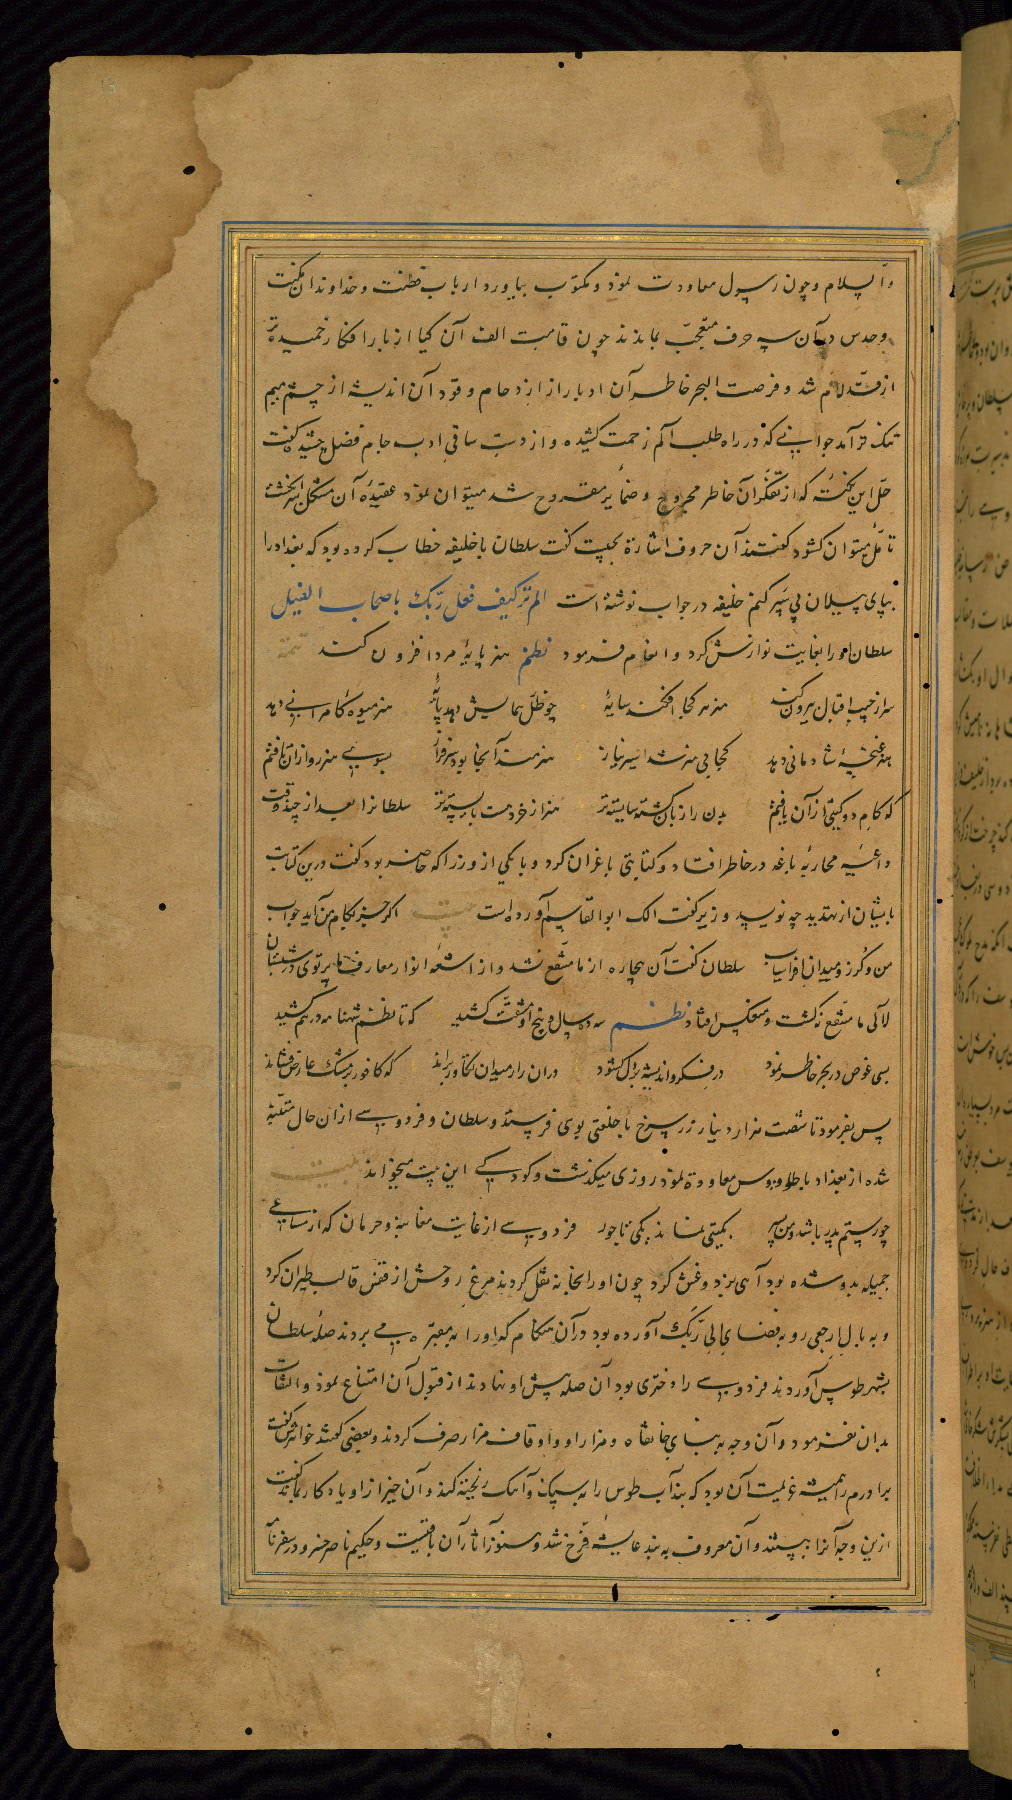 والسلام و چون رسول معاودت نمود و مکتوب بیاورد ارباب فطنت و خداوندان مکنت
وحدس در آن سه حرف متعجب بماندند چون قامت الف آن کیا از بار افکار خمیده تر
از قد لام شد و فرصت خاطر آن ادبار از ازدحام و قود آن اندیشه از چشم میم
تنک تر آمد جوانی که در راه طلب الم زحمت کشیده و از دست ساقی ادب جام فضل چشیده گفت
حل این نکته که از تفکر آن خاطر مجروح و ضمایر مقروح شد میتوان نمود عقیده آن مشکل بسر انکشت
تامل میتوان کشود گفتند آن حروف اشارة بچیست گفت سلطان با خلیفه خطاب کرده بود که بغداد را
بپای پیلان پی سپر کنم خلیفه در جواب نوشته است الم تر کیف فعل ربک باصحاب الفیل
سلطان او را بغایت نوازش کرد و انعام فرمود نظم هنر پایهٔ مرد افزون کند
سر از جیب اقبال بیرون کند هنر هر کجا افکند سایهٔ چو ظل همایش دهد پایهٔ هنر میوهٔ کامرانی دهد
هنر غنچهٔ شادمانی دهد کجا بی هنر شد اسیر نیاز هنرمند آنجا بود سرفراز بسوی هنر رو ازان تافتم
که کام دو کیتی ازان یافتم بدن را ز باکشته شایسته تر هنر از خردمند بایسته تر سلطانرا بعد از چند وقت
داعیهٔ محاربهٔ باغه در خاطر افتاد و کتابتی باغزان کرد و با یکی از وزرا که حاضر بود گفت درین کتابت
بایشان از تهدید چه نویسد وزیر گفت انک ابو القاسم آورده است بیت اگر جز بکام من آید جواب
من و گرز و میدان افراسیاب سلطان گفت آن بیچاره از ما متنفع نشد و از اشعهٔ انوار معارف ما پرتوی در شبستان
لآلی ما متنفع نکشت و منعکس افتاد نظم سه ده سال و پنج او مشقت کشید که تا نظم شهنامه در هم کشید
بسی غوص در بحر خاطر نمود در فکر و اندیشه بر دل کشود دران را ز میدان تکاور براند که کافور بر مشک عارض فشاند
پس بفرمود تا شصت هزار دینار زر سرخ با خلعتی بوی فرستند و سلطان و فردوسی ازان حال متنبه
شده از بغداد با طوس معاودة نمود روزی میکذشت و کودکی این بیت میخواند بیت
چو رستم پدر باشد و من پسر بگیتی نماند یکی تاجور فردوسی از غایت مغابنه و حرمان که از مساعی
جمیله بدو شده بود آهی بزد و غش کرد چون او را بخانه نقل کردند مرغ روحش از قفس قالب طیران کرد
و به بال ارجعی رو به فضای الی ربک آورده بود در آن هنکام که او را به مقبره می بردند صلهٔ سلطان
بشهر طوس آوردند فردوسی را دختری بود آن صله پیش او نهادند از قبول آن امتناع نمود و التفات
بدان نفرمود و آن وجه به بنای خانقاه و مزار او و اوقاف مزار صرف کردند و بعضی گفتند خواهرش گفت
برادرم را همیشه عزیمت آن بود که بند آب طوس را به سنک و آهک ریخته کند و آن خیر از او یادکار بماند گفت
ازین وجه آنرا ببستند و آن معروف به بند عایشه فرخ شد و هنوز آثار آن باقیست و حکیم ناصر خسرو در سفرنامه